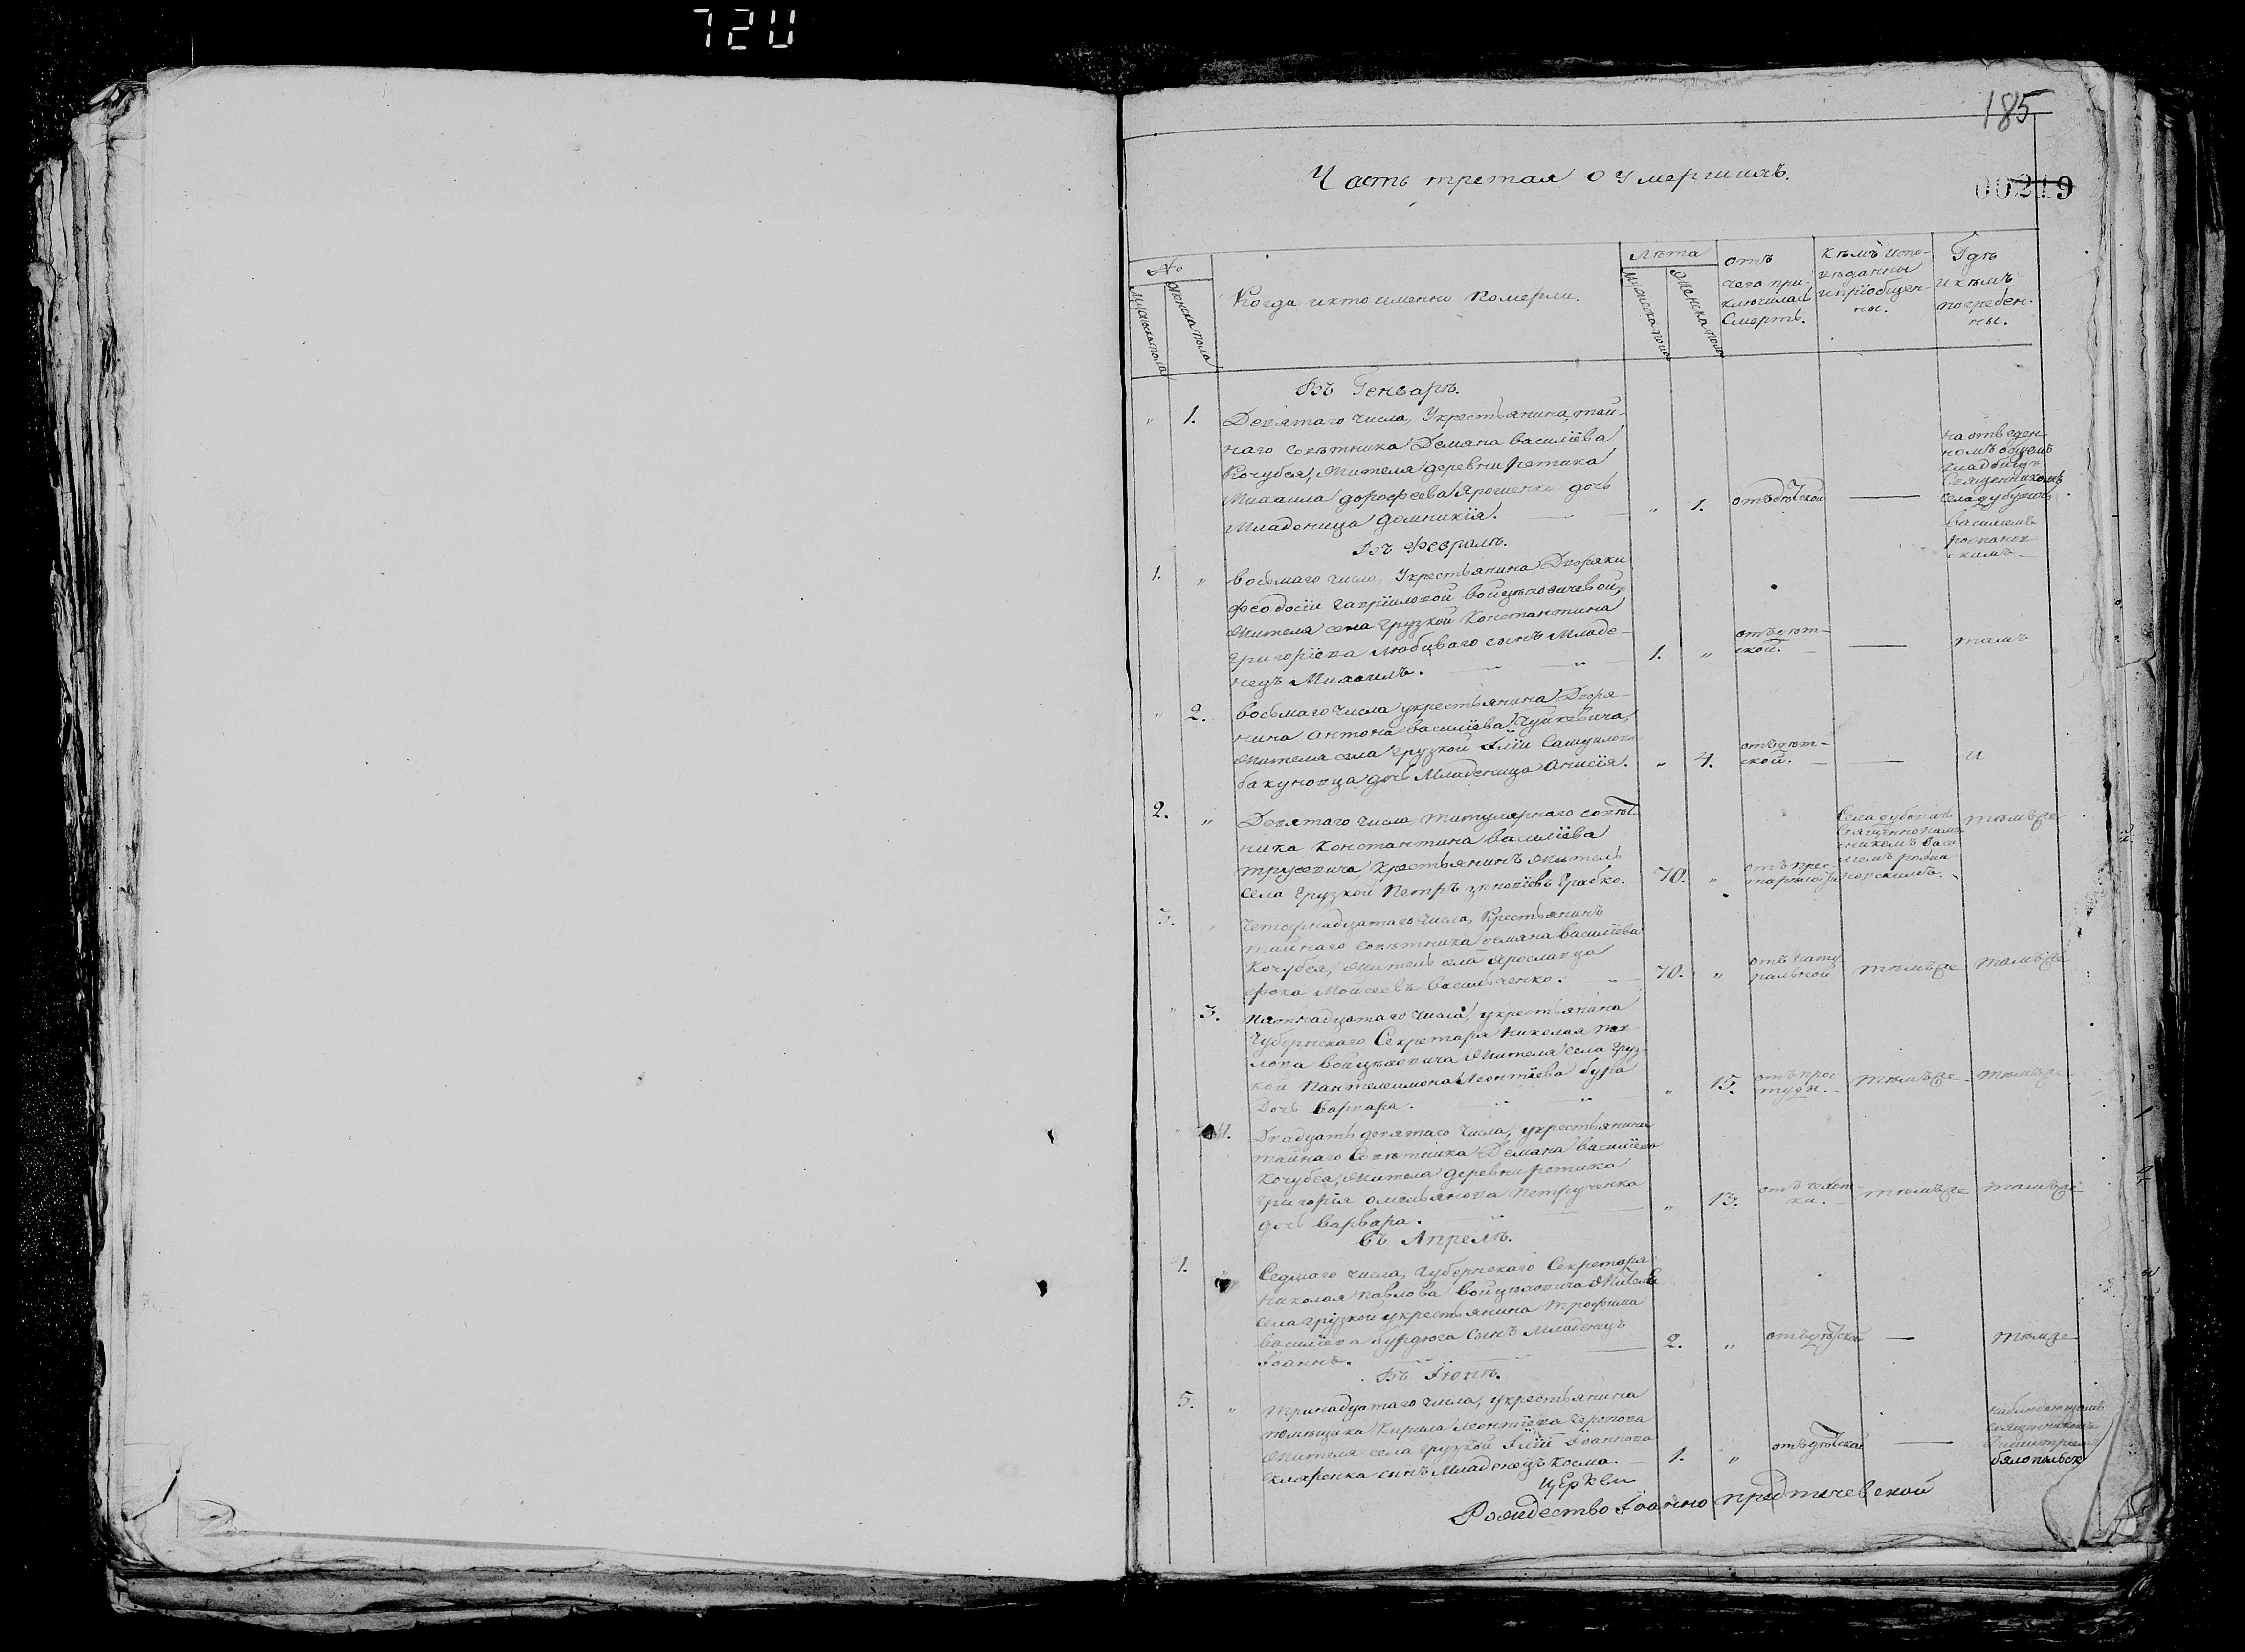 720
185
00219
Часть третая о умершихъ.
№
Мужеска пола
Женска пола
Когда и кто именно померли.
Лѣта
Мужеска пола
Женска пола
отъ чего при-
ключилась
Смерть.
Кѣмъ испо-
вѣданны
и пріобщен-
ны.
Гдѣ
и кѣмъ
погребен-
ны.
Въ Генварѣ.
" 1. Девятаго числа, У крестьянина, тай-
наго совѣтника Демяна василіева
Кочубея, Жителя деревни Ретика
Михаила дорофеева Ярошенка дочь
Младеница домникія. " 1. отъ дѣтской —
на отведен-
номъ общемъ
кладбищѣ
Священникомъ
села дубовичъ
василіемъ
Въ Февралѣ.
1. " восьмаго числа, У крестьянина, Дворянки
Феодосіи гавріиловой войцѣховичевой,
Жителя села Грузкой Константина
Григоріева любиваго сынъ младе-
нецъ Михаилъ. 1. " отъ дѣт-
ской. — тамъ
" 2. восьмаго числа у крестьянина Дворя-
нина Антона василіева Чуйкевича,
Жителя села Грузкой Іліи Самуилова
бакуновца дочь Младеница Анисія. " 4. отъ дѣт-
ской. — и
2. " Девятаго числа, титулярнаго совѣт-
ника Константина василіева
трусевича, Крестьянинъ Житель
Села Грузкой Петръ зѣновіевъ Грабко. 70. " отъ прес-
тарѣлости
Села дубовичъ
тѣмъ же
3. " Четырнадцатаго числа, Крестьянинъ
тайнаго совѣтника демяна василіева
Кочубея, Житель села Ярославца
Фока Мойсеевъ васильченко. 70. " отъ нату
ральной тѣмъ же тамъ же
" 3. Пятнадцатаго числа, у крестьянина
Губернскаго Секретаря Николая пав-
лова войцѣховича Жителя села Груз-
кой Пантелеимона Леонтіева бура
Дочь варвара. " 15. отъ прос
туды. тѣмъ же тѣмъ же
" 4. Двадцать девятаго числа, у крестьянина
тайнаго Совѣтника Демяна василіева
Кочубея, Жителя деревни ретика
Григорія омельянова петрученка
дочь варвара. " 13. отъ чахот-
ки. тѣмъ же тамъ же
въ Апрелѣ.
4. " Седмаго числа, Губернскаго Секретаря
Николая павлова войцѣховича Жителя
села Грузкой у крестьянина трофима
василіева бурдюга сынъ младенецъ
Іоаннъ. 2. " отъ дѣтской — тѣм же
Въ Іюнѣ.
5. " тринадцатаго числа, у крестьянина
помѣщика Кирила Леонтіева черепова
Жителя села Грузкой Іліи Іоаннова
скляренка сынъ Младенецъ Косма. 1. " отъ дѣтской —
наблюдающимъ
священникомъ
Димитріемъ
бялопольск
церкви
Рождество Іоанно предтичевской